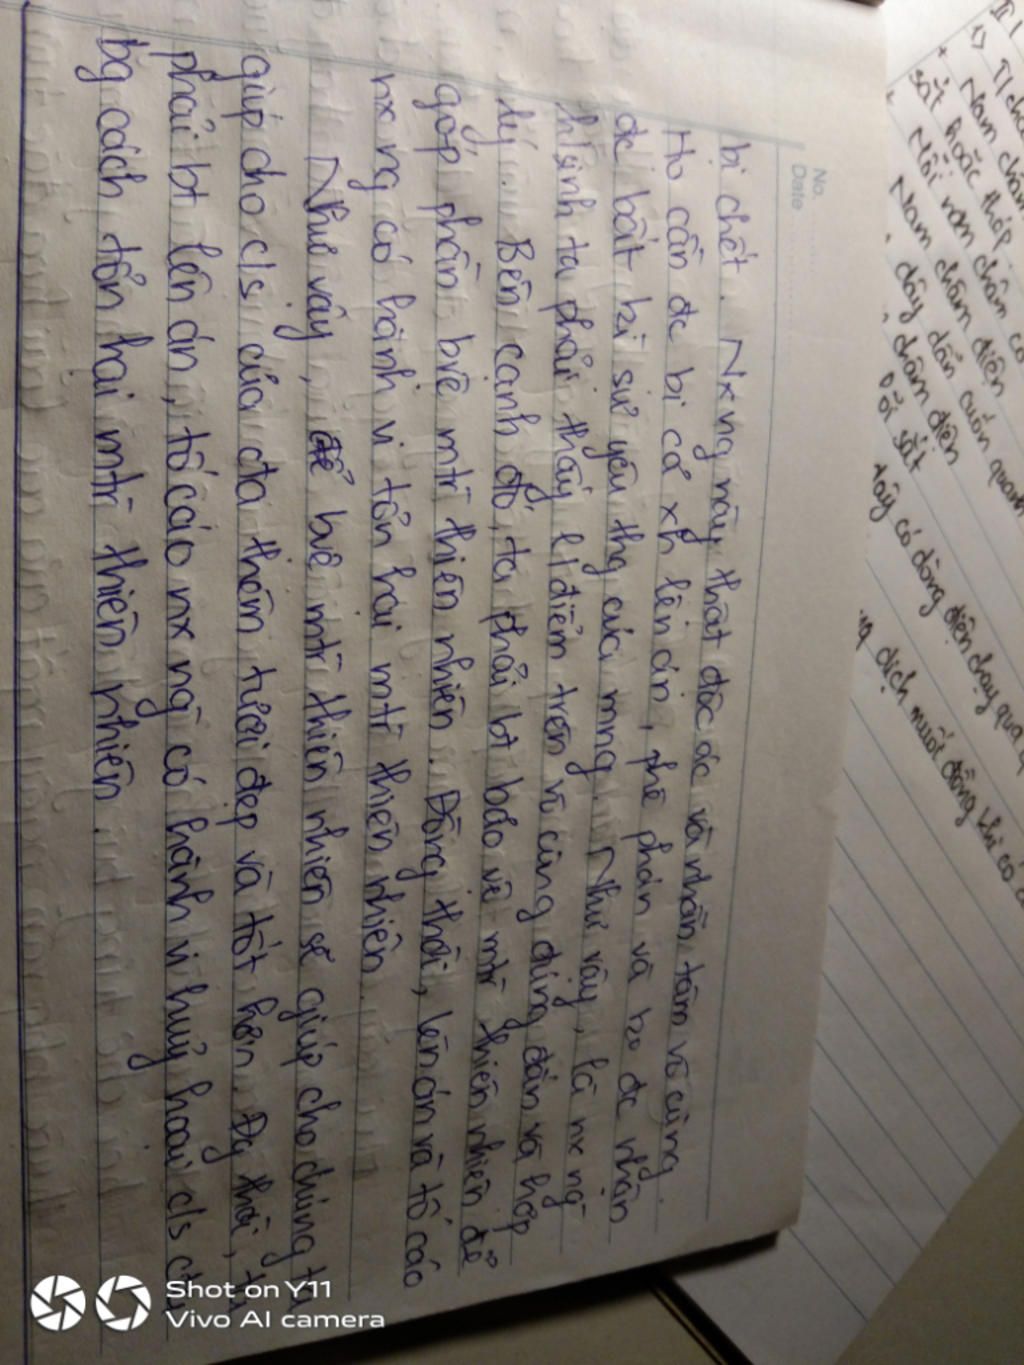 No.
Date
bị chết. Nx ng này thật độc ác và nhẫn tâm vô cùng.
Họ cần đc bị cả xh lên án, phê phán và ko đc nhận
đc bất kì sự yêu thg của mng. Như vậy, là nx ng
h/sinh ta phải thấy q/điểm trên vô cùng đúng đắn và hợp
lý. Bên cạnh đó, ta phải bt bảo vệ mtr thiên nhiên để
góp phần bvệ mtr thiên nhiên. Đồng thời, lên án và tố cáo
nx ng có hành vi tổn hại mtr thiên nhiên.
Như vậy, để bvệ mtr thiên nhiên sẽ giúp cho chúng ta
giúp cho c/s của cta thêm tươi đẹp và tốt hơn. Đg thời, ta
phải bt lên án, tố cáo nx ng có hành vi huỷ hoại c/s
bg cách tổn hại mtr thiên nhiên.
Nam châm
sắt hoặc thép
Nam châm điện
dây dẫn cuốn quanh
lõi sắt
dây có dòng điện chạy qua
dịch muối đồng khi có
Shot on Y11
Vivo AI camera